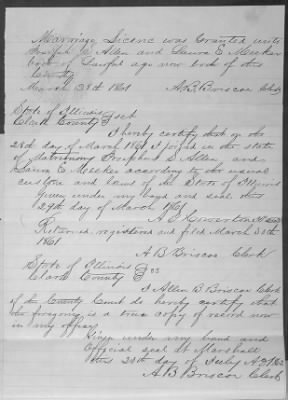 Marriage License was Granted unto
S. Allen and Laura E. Meeker
both of Lawful age now both of this
County
March 28th 1861 A. B. Briscoe Clerk
State of Illinois
Clark County } sct
I hereby certify that on the
28th day of March 1861 I joined in the state
of Matrimony S Allen and
Laura E. Meeker according to the usual
custom and laws of the State of Illinois
Given under my hand and seal this
29th day of March 1861
Returned registered and filed March 30th
1861
A B Briscoe Clerk
State of Illinois
Clark County } ss
I Allen B Briscoe Clerk
of the County Court do hereby certify that
the foregoing is a true copy of record now
in my office
Given under my hand and
Official seal at Marshall
this 28th day of July A.D. 186
A B Briscoe Clerk